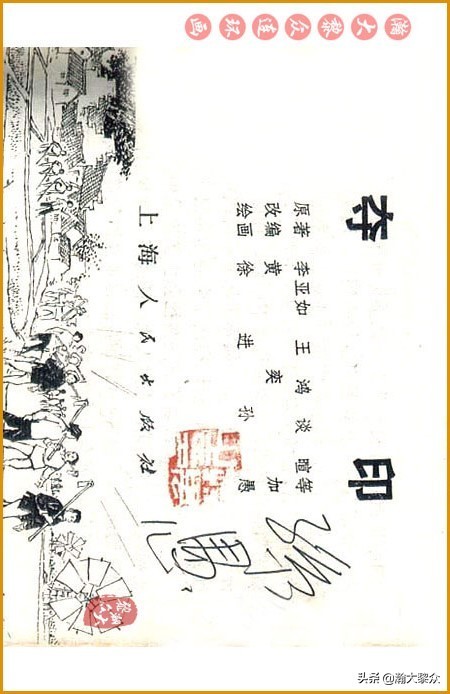 瀚大黎众连环画
夺印
原著 李亚如 王鸿 谈暄等
改编 黄奕加
绘画 徐进 孙愚
上海人民出版社
瀚大黎众
头条@瀚大黎众